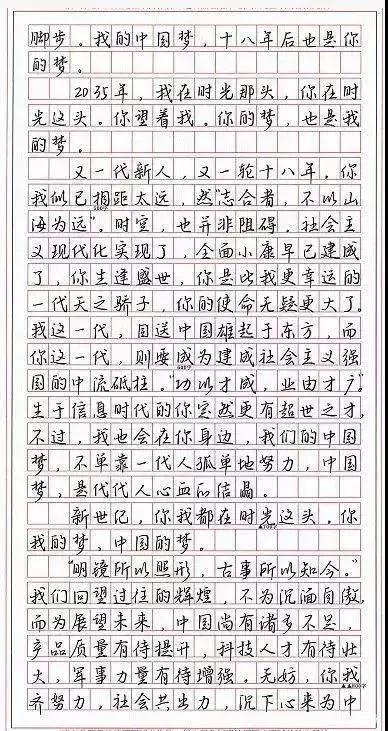 脚步。我的中国梦，十八年后也是你
的梦。
2035年，我在时光那头，你在时
光这头。你望着我。你的梦，也是我
的梦。
又一代新人，又一轮十八年。你
我似已相距太远，然“志合者，不以山
海为远”。时空，也并非阻碍。社会主
义现代化实现了，全面小康早已建成
了，你生逢盛世，你是比我更幸运的
一代天之骄子，你的使命无疑更大了。
我这一代，目送中国雄起于东方，而
你这一代，则要成为建成社会主义强
国的中流砥柱。“功以才成，业由才广”。
生于信息时代的你定然更有超世之才，
不过，我也会在你身边，我们的中国
梦，不单靠一代人孤单地努力，中国
梦，是代代人心血的结晶。
新世纪，你我都在时光这头。你
我的梦、中国的梦。
“明镜所以照形，古事所以知今。”
我们回望过往的辉煌，不为沉湎自傲，
而为展望未来，中国尚有诸多不足，
产品质量有待提升，科技人才有待壮
大，军事力量有待增强。无妨，你我
▲▲800字
齐努力，社会共出力，沉下心来为中